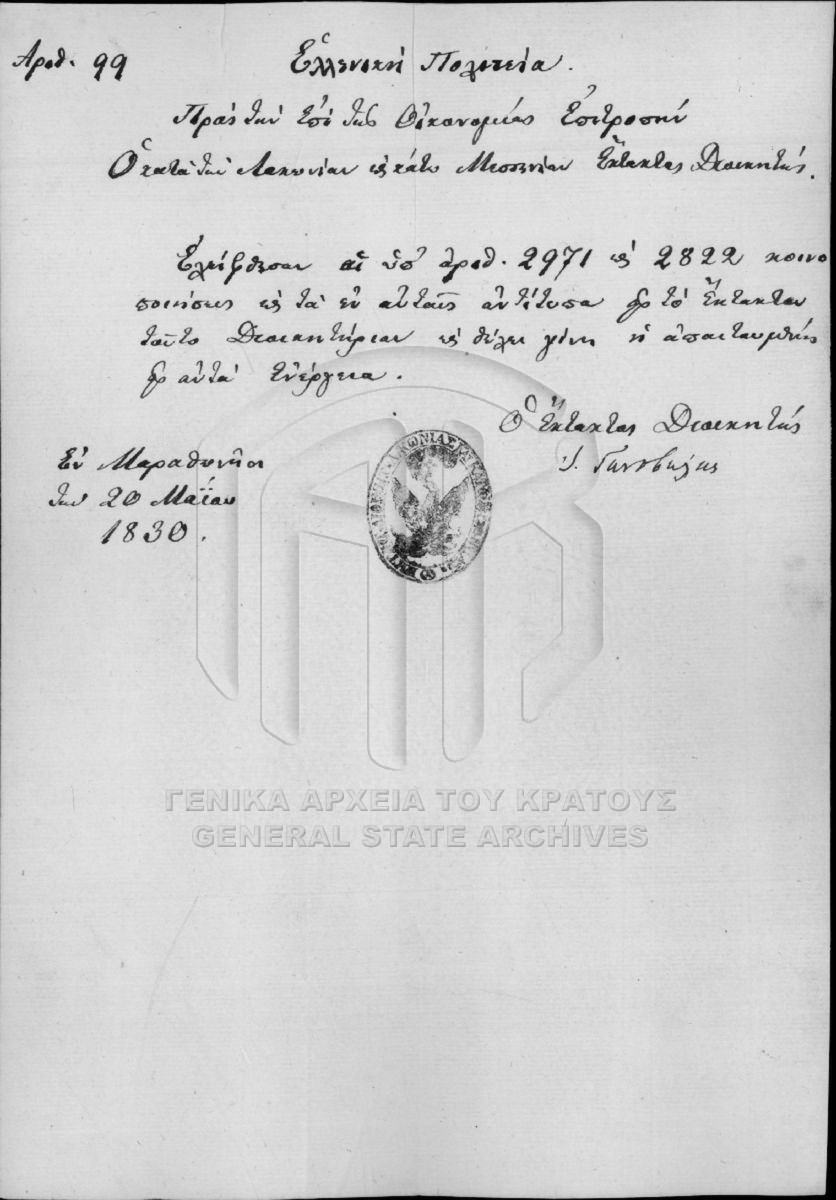 Αριθ. 99
Ἑλληνική Πολιτεία.
Πρός τήν ἐπί τῆς Οἰκονομίας Ἐπιτροπήν
Ὁ κατά τήν Λακωνίαν καί κάτω Μεσσηνίαν Ἔκτακτος Διοικητής.
Ἐλείφθησαν αἱ ὑπ' ἀριθ. 2971 καί 2822 κοινο
ποιήσεις καί τά ἐν αὐταῖς ἀντίτυπα εἰς τό Ἔκτακτον
τοῦτο Διοικητήριον καί θέλει γίνη ἡ ἀπαιτουμένη
εἰς αὐτά ἐνέργεια.
Ὁ Ἔκτακτος Διοικητής
Ἐν Μαραθωνήσι
τήν 20 Μαΐου
1830.
ΓΕΝΙΚΑ ΑΡΧΕΙΑ ΤΟΥ ΚΡΑΤΟΥΣ
GENERAL STATE ARCHIVES